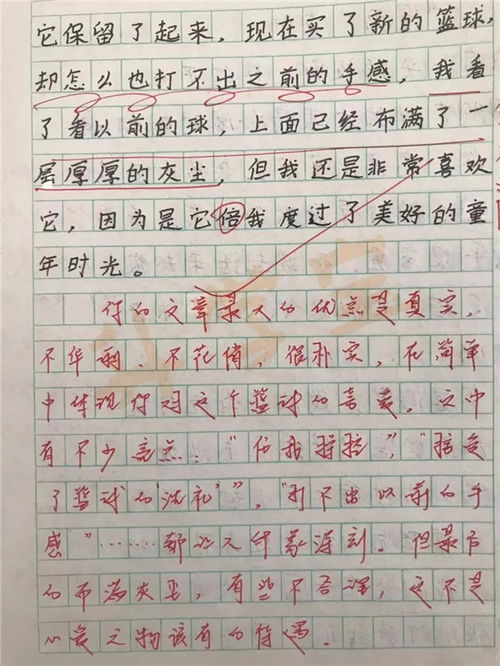 它保留了起来，现在买了新的篮球，
却怎么也打不出之前的手感，我看
了看以前的球，上面已经布满了一
层厚厚的灰尘，但我还是非常喜欢
它，因为是它倍我度过了美好的童
年时光。
你的文章最大的优点是真实，
不华丽、不花俏，很朴实，在简单
中体现你对这个篮球的喜爱。文中
有不少亮点：“伤我脖捡”，“接受
了篮球的洗礼”，“打不出以前的手
感”……都让人印象深刻。但最后
的布满灰尘，有些不合理，这不是
心爱之物该有的待遇。